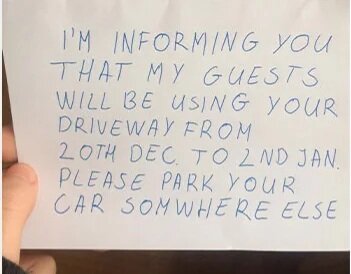 I'M INFORMING YOU
THAT MY GUESTS
WILL BE USING YOUR
DRIVEWAY FROM
20TH DEC. TO 2ND JAN.
PLEASE PARK YOUR
CAR SOMWHERE ELSE